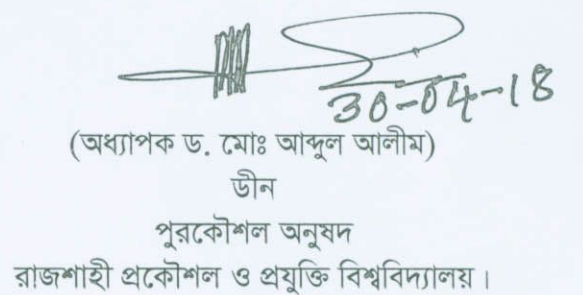 30-04-18
(অধ্যাপক ড. মোঃ আব্দুল আলীম)
ডীন
পুরকৌশল অনুষদ
রাজশাহী প্রকৌশল ও প্রযুক্তি বিশ্ববিদ্যালয়।